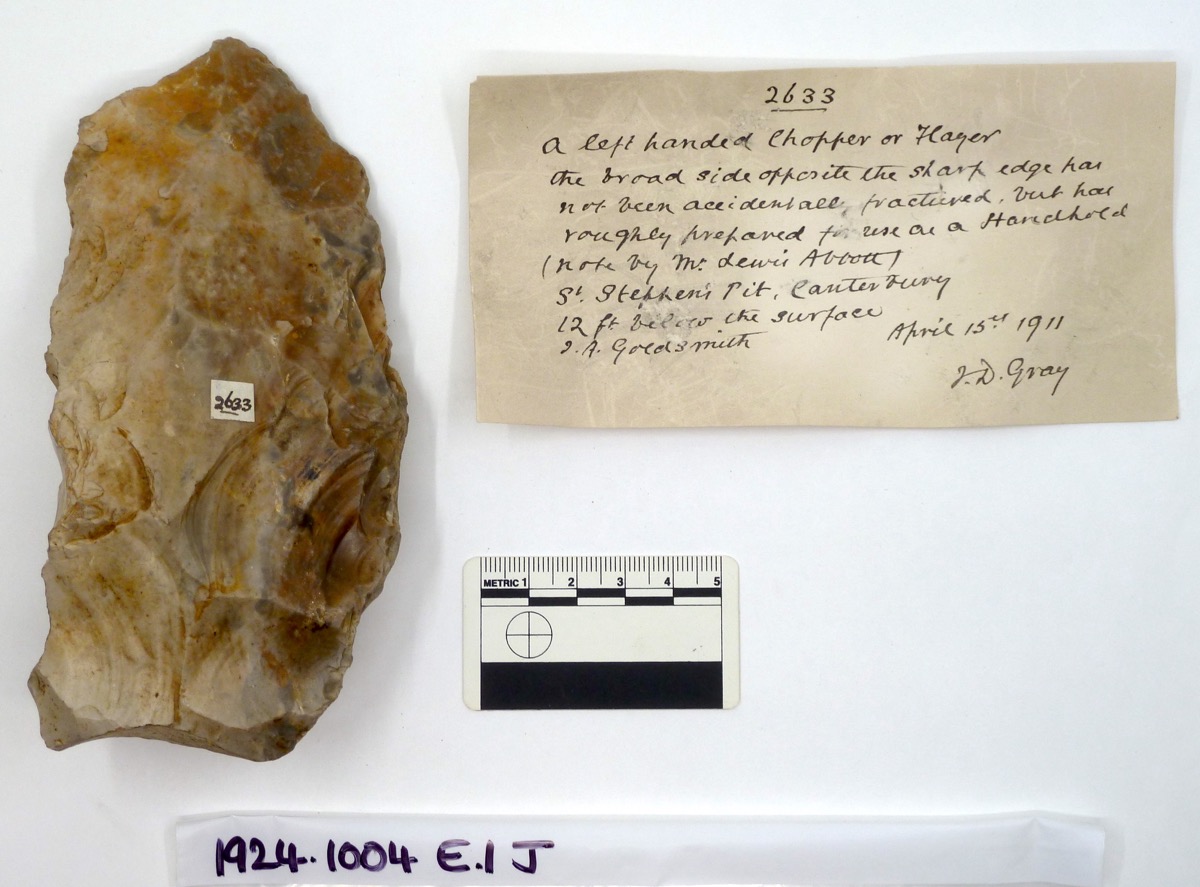 2633
A left handed Chopper or Flayer
the broad side opposite the sharp edge has
not been accidentally fractured, but has
roughly prepared for use as a Handhold
(note by Mr Lewis Abbott)
St. Stephen's Pit, Canterbury
12 ft below the surface
J.A. Goldsmith
April 15th 1911
J.D. Gray
2633
METRIC 1 2 3 4 5
1924..1004 E.1 J